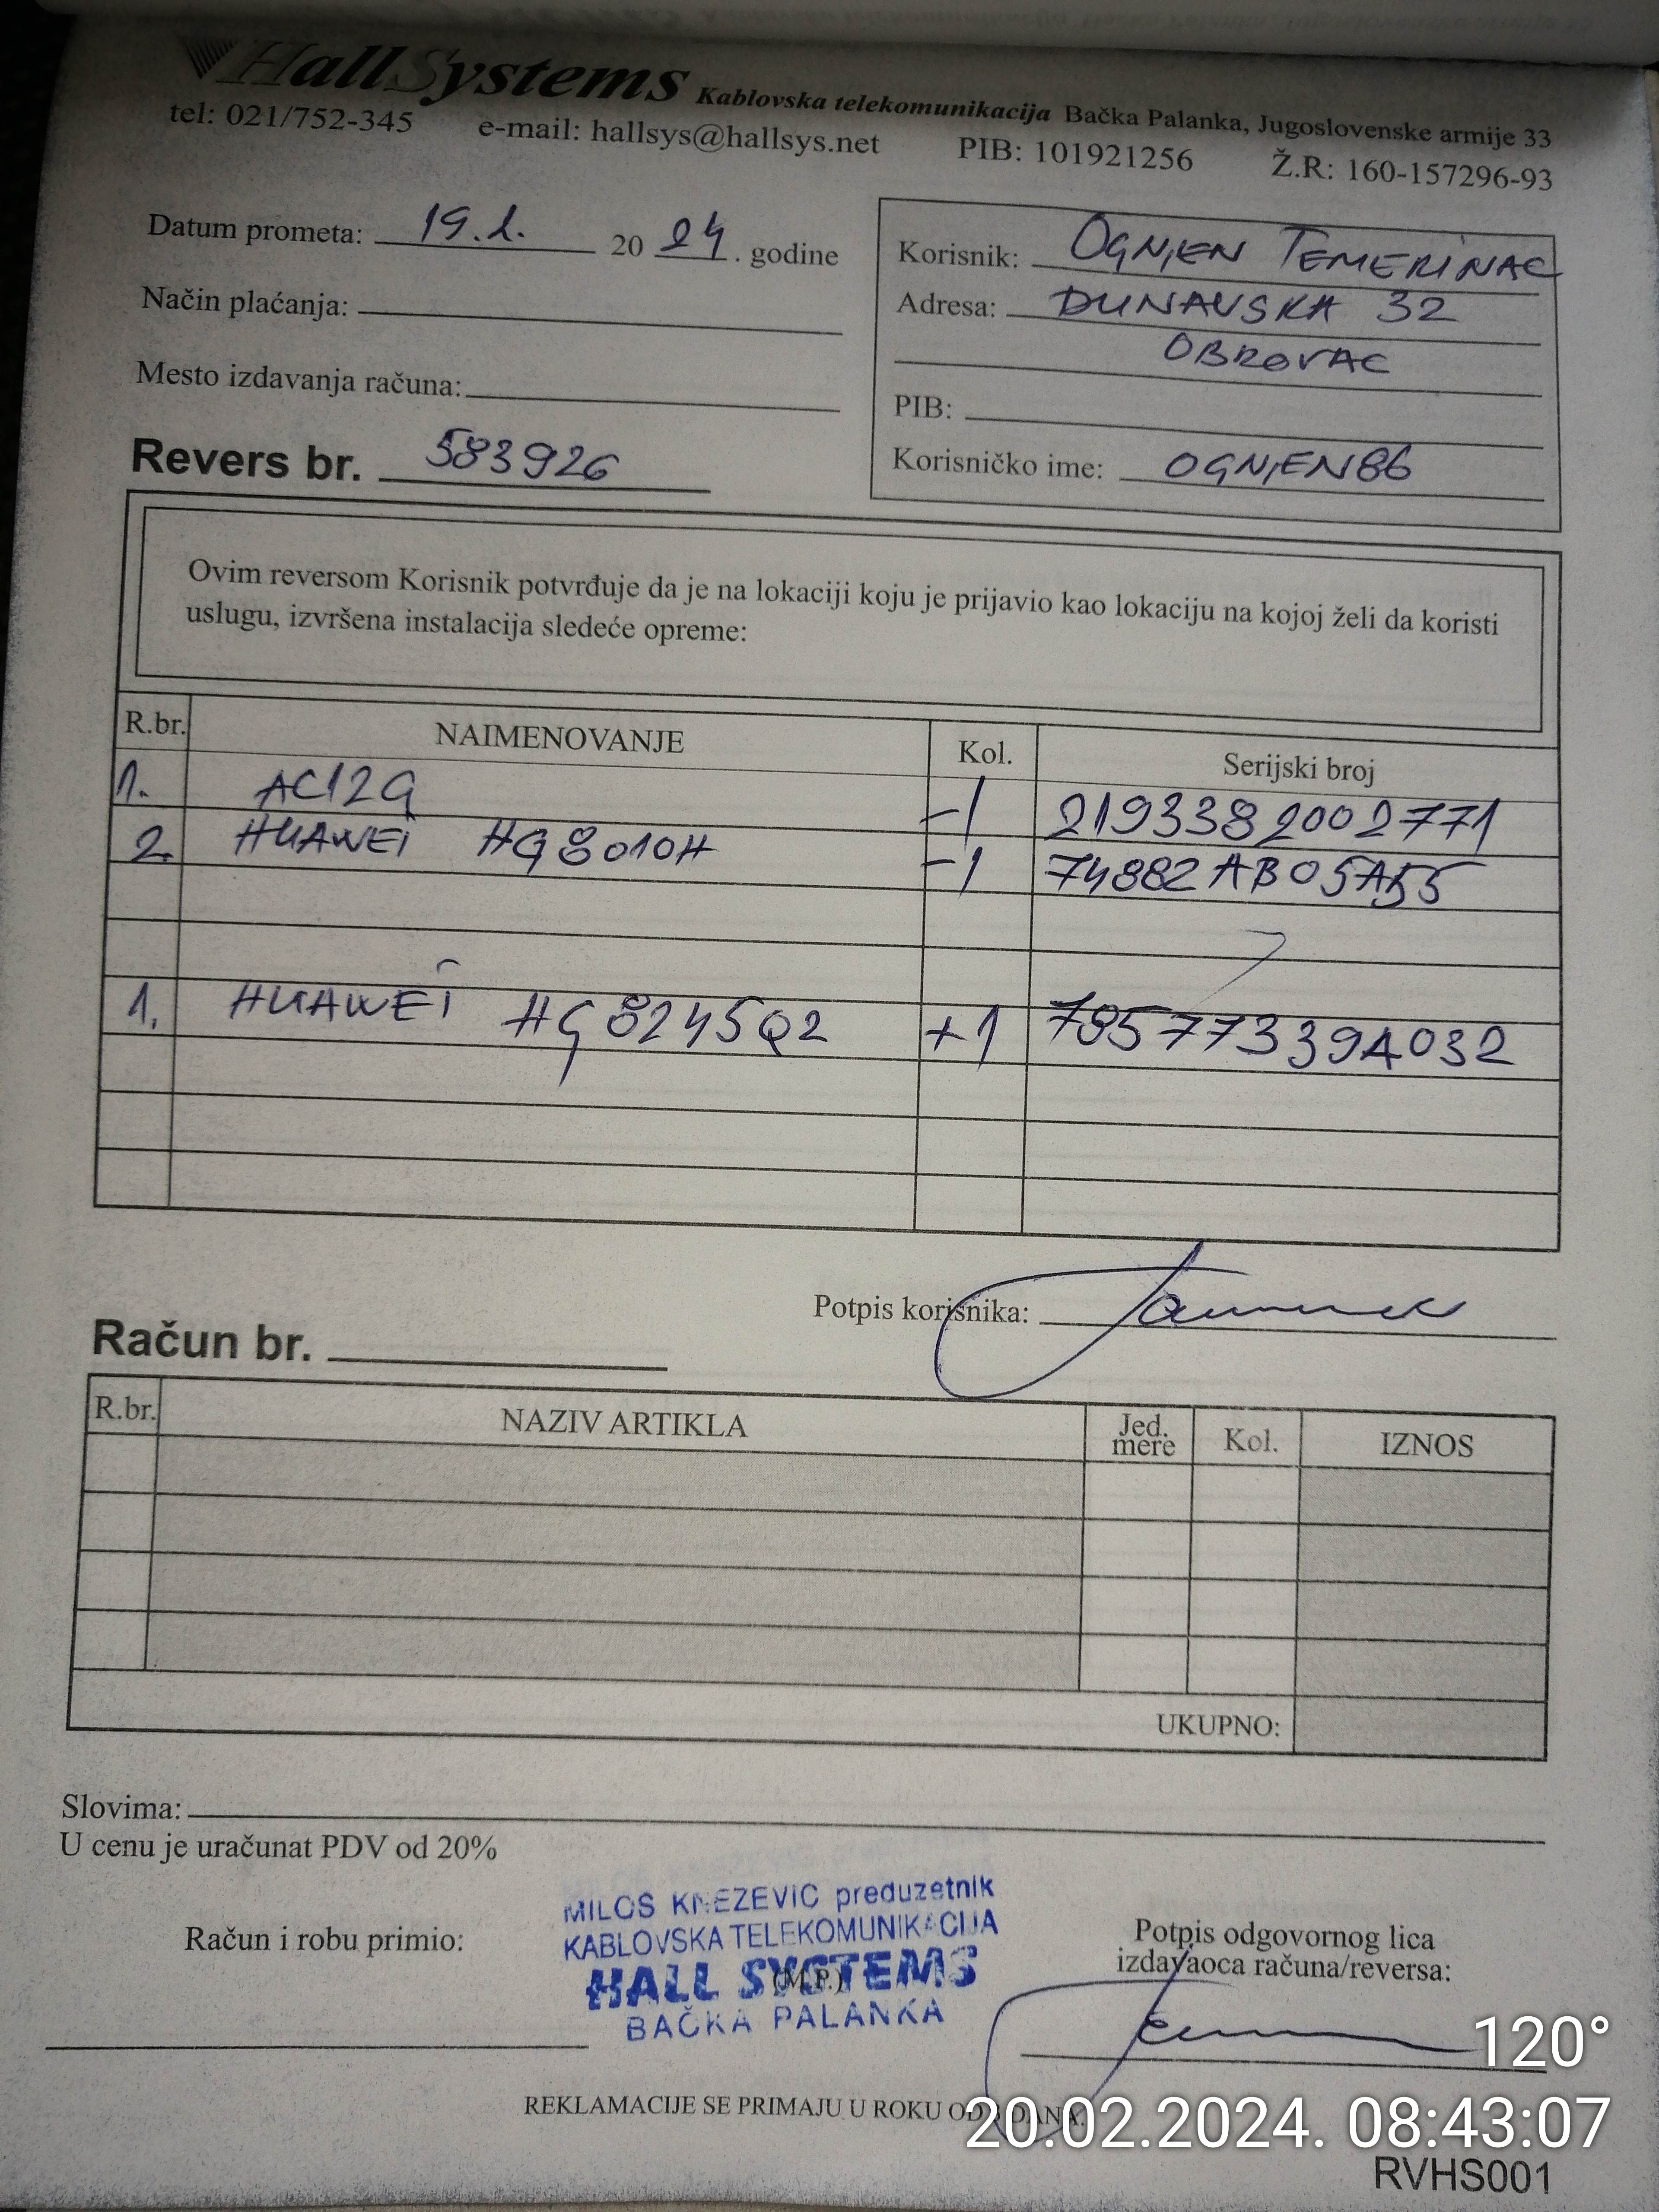 HallSystems Kablovska telekomunikacija Bačka Palanka, Jugoslovenske armije 33
tel: 021/752-345 e-mail: hallsys@hallsys.net PIB: 101921256 Ž.R: 160-157296-93
Datum prometa: 19.2. 20 24. godine
Način plaćanja:
Mesto izdavanja računa:
Revers br. 583926
Korisnik: OGNJEN TEMERINAC
Adresa: DUNAVSKA 32
OBROVAC
PIB:
Korisničko ime: OGNJEN86
Ovim reversom Korisnik potvrđuje da je na lokaciji koju je prijavio kao lokaciju na kojoj želi da koristi
uslugu, izvršena instalacija sledeće opreme:
R.br. NAIMENOVANJE Kol. Serijski broj
1. AC12G -1 2193382002771
2. HUAWEI HG8010H -1 74882AB05A55
1. HUAWEI HG8245Q2 +1 78577339A032
Potpis korisnika:
Račun br.
R.br. NAZIV ARTIKLA Jed. mere Kol. IZNOS
UKUPNO:
Slovima:
U cenu je uračunat PDV od 20%
MILOS KNEZEVIC preduzetnik
KABLOVSKA TELEKOMUNIKACIJA
HALL SYSTEMS
BAČKA PALANKA
Račun i robu primio:
(M.P.)
Potpis odgovornog lica
izdavaoca računa/reversa:
120°
REKLAMACIJE SE PRIMAJU U ROKU OD DANA.
20.02.2024. 08:43:07
RVHS001